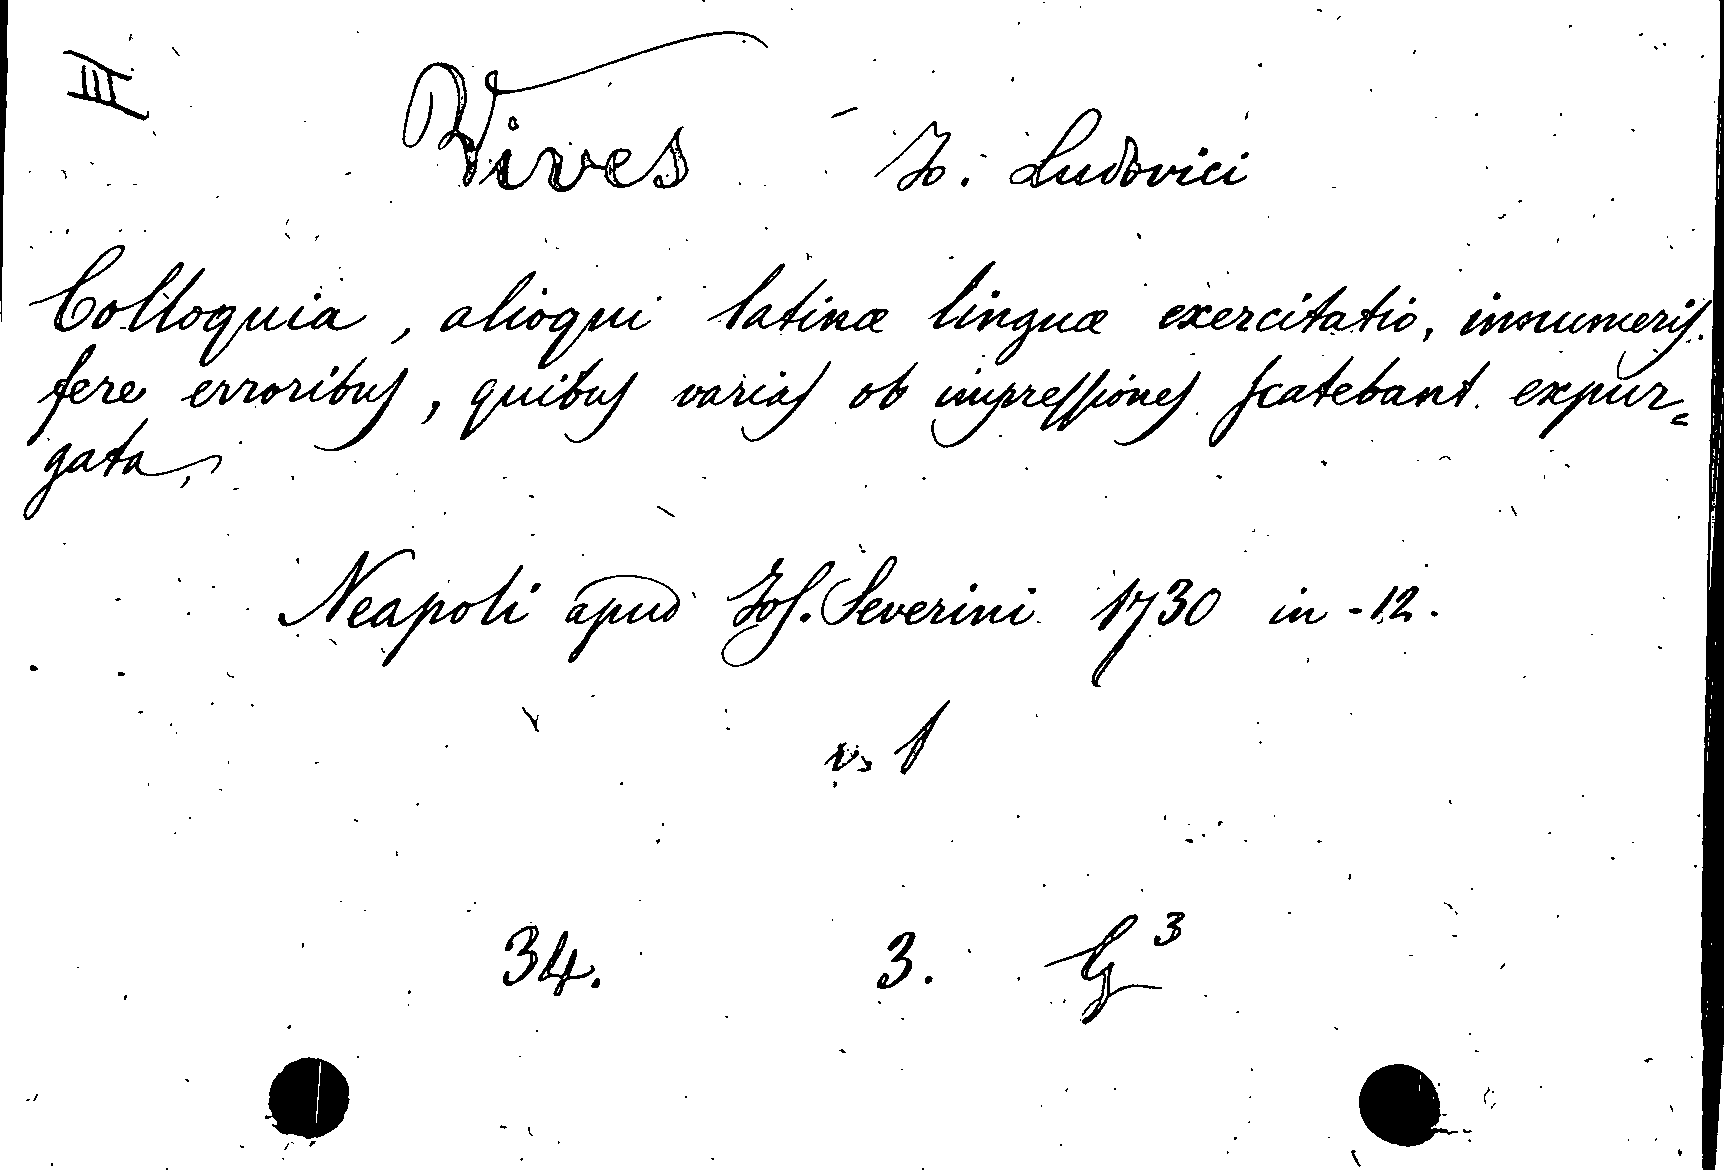 III
Vives Jo. Ludovici
Colloquia, alioqui latinæ linguæ exercitatio, innumeris
fere erroribus, quibus varias ob impressiones scatebant expur=
gata,
Neapoli apud Jos. Severini 1730 in-12.
v. 1
34. 3. G³